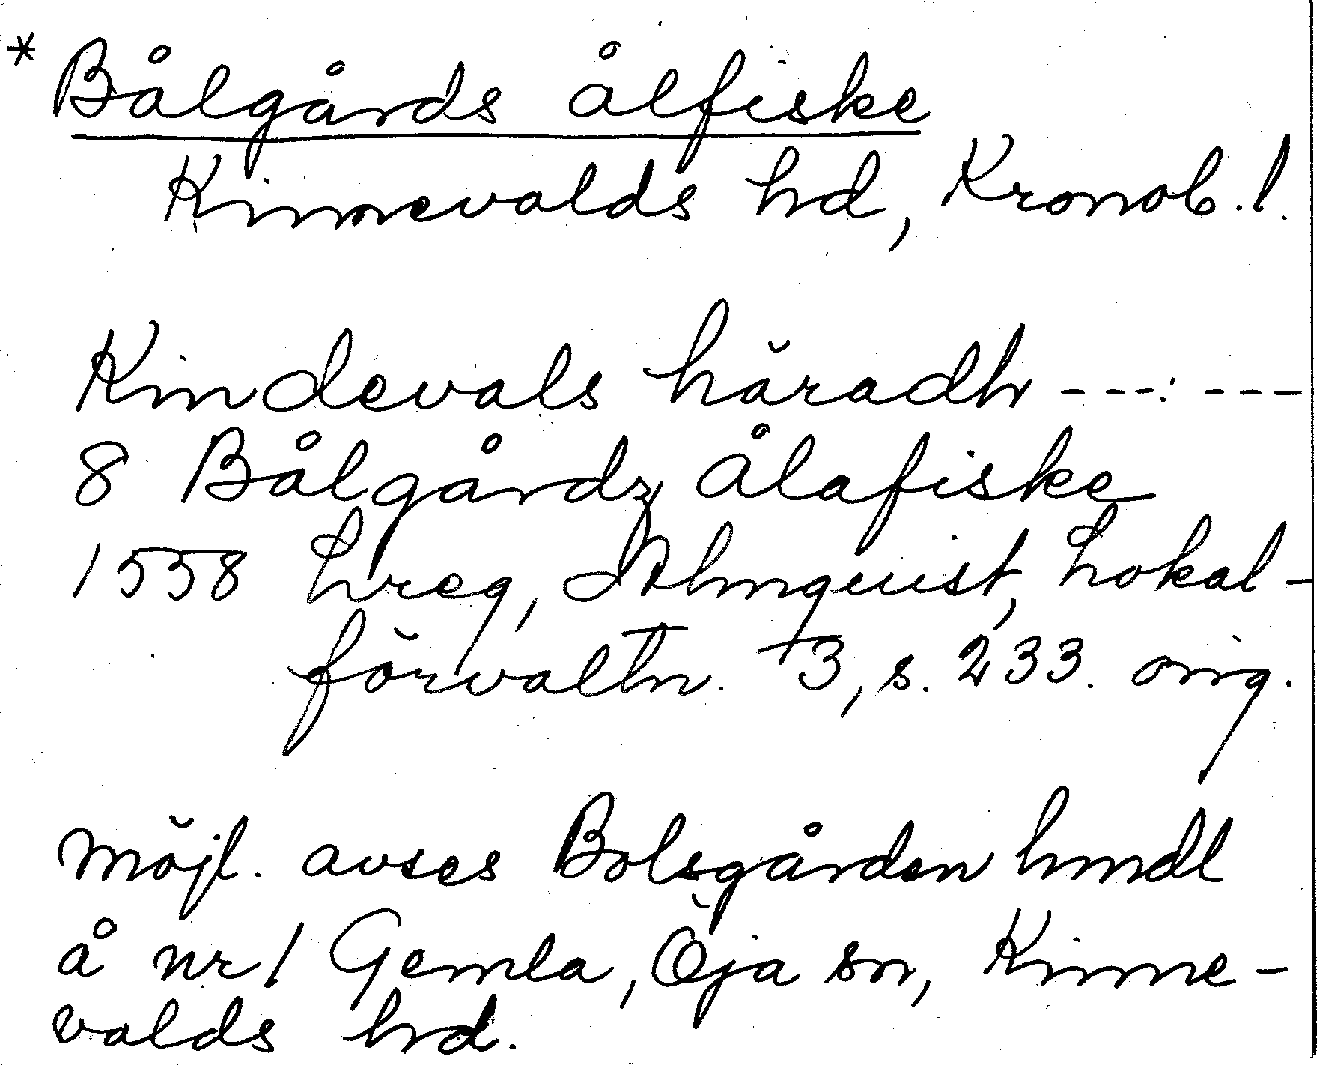 * Bålgårds ålfiske
Kinnevalds hd, Kronob. l.
Kindevals häradh - - - : - - -
8 Bålgårdz Ålafiske
1558 hreg, Almquist, Lokal-
förvaltn. 3, s. 233. orig.
Möjl. avses Bolsgården hmdl
å nr 1 Gemla, Öja sn, Kinne-
valds hd.